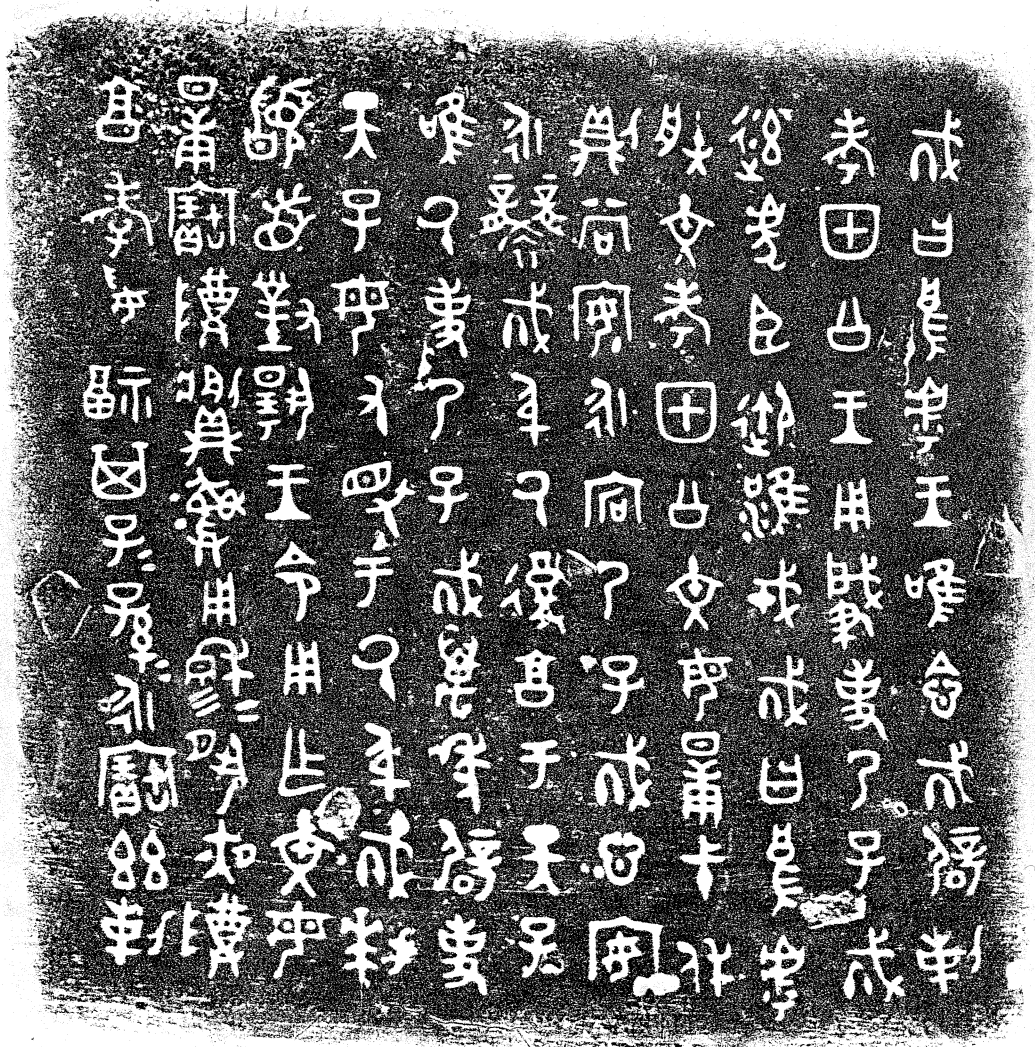 𢦚曰烏虖王唯念𢦚辟剌
考甲公王用肇事乃子𢦚
率虎臣御滩戎𢦚曰烏虖
朕文考甲公文母日庚弋休
則尚安永宕乃子𢦚心安
永襲𢦚身厥復享于天子
唯厥事乃子𢦚萬年辟事
天子毋又眚于厥身𢦚拜
稽首對揚王令用乍文母
日庚寶尊𩰫彝用穆=夙夜尊
享孝妥福其子=孫=永寶茲剌